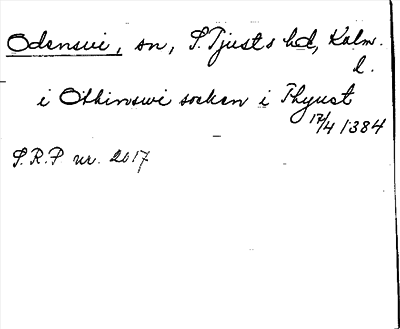 Odensvi, sn, S. Tjusts hd, Kalm.
l.
i Othinswi socken i Thyust
17/4 1384
S.R.P nr. 2017